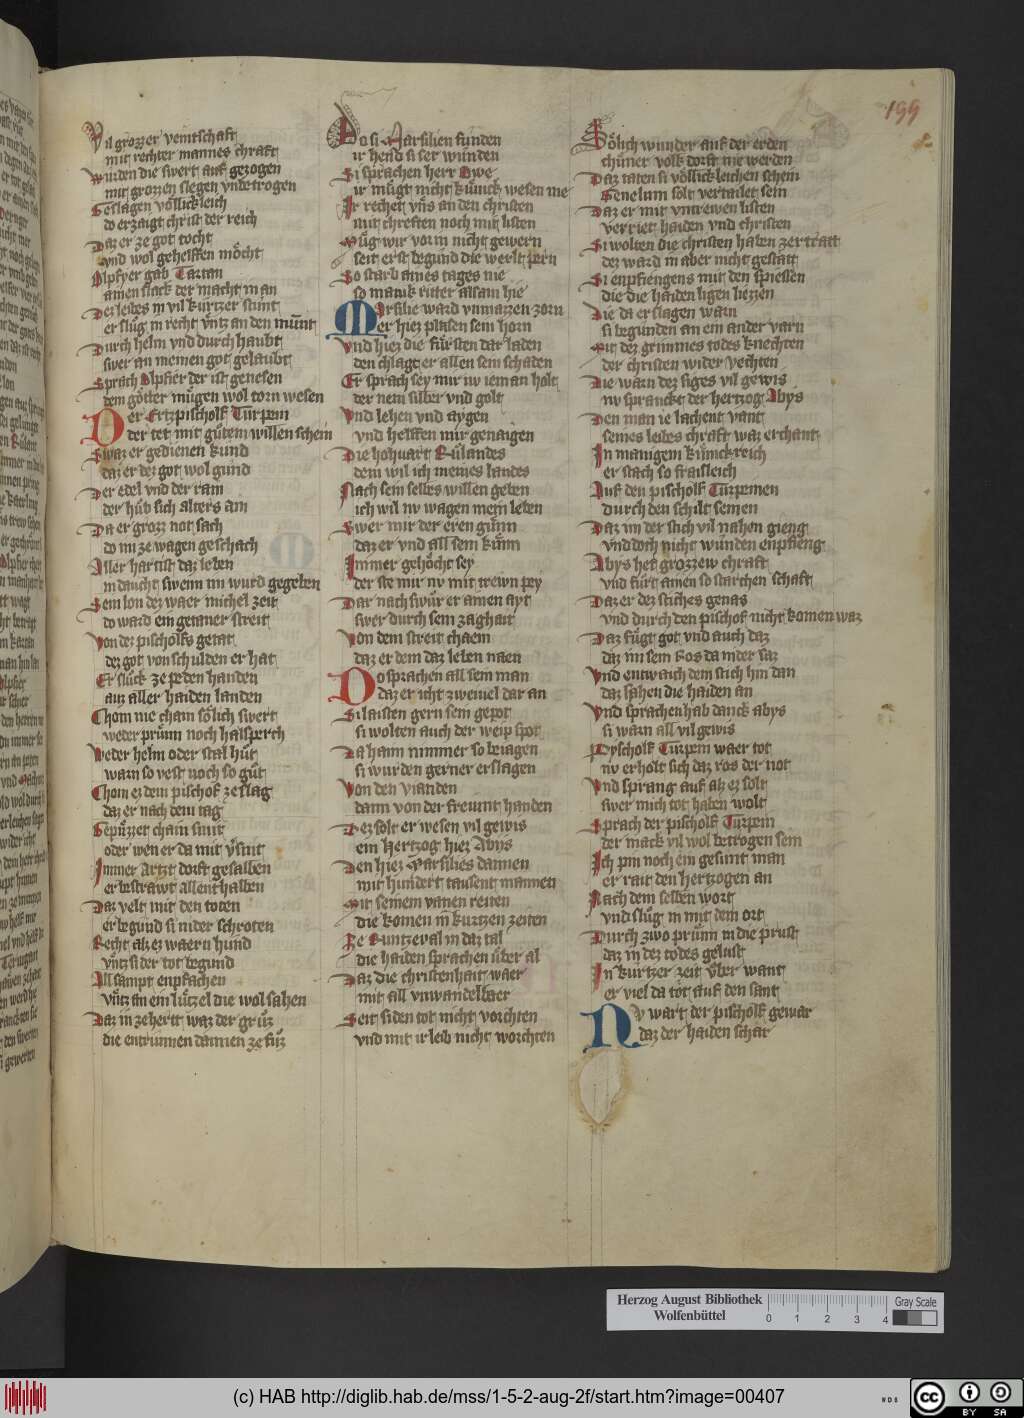 199
Vil grozzer veintschaft
mit rechter mannes chraft
Wurden die swert auf gezogen
mit grozzen slegen vnbetrogen
Geslagen völlickleich
do erzaigt christ der reich
Daz er ze got tocht
vnd wol gehelffen möcht
Alpfyer gab Tartan
ainen slack der macht in an
Dez leibes in vil kurtzer stunt
er slug in recht vntz an den munt
Durch helm vnd durch haubt
swer an meinen got gelaubt
Sprach Alpfier der ist genesen
dem götter mügen wol torn wesen
Der Ertzpischolf Turpein
der tet mit gütem willen schein
Swaz er gedienen kund
daz er dez got wol gund
Der edel vnd der rain
der hüb sich alters ain
Da er grozz not sach
do im ze wagen geschach
Aller hartist daz leben
in daucht swenn im wurd gegeben
Sein lon dez waer michel zeit
do ward ein getaner streit
Von dez pischolfs getat
dez got von schulden er hat
Er sluck ze peden handen
auz aller haiden landen
Chom nie chain sölich swert
weder prünn noch halsperch
Weder helm oder stal hüt
warn so vest noch so güt
Chom ez dem pischof ze slag
daz er nach dem tag
Gepüzzet chain smit
oder wen er da mit versnit
Immer Artzt dorft gesalben
er bestrawt allenthalben
Daz velt mit den toten
er begund si nider schroten
Recht alz ez waern hund
vntz si der tot begund
All sampt enpfachen
vntz im ein lützel die wol sahen
Daz in ze hertt waz der grüz
die entrunnen dannen ze füz
Do si Marsilien funden
ir hend si ser wunden
Si sprachen herr Owe
ir mügt nicht künick wesen me
Ir rechet vns an den christen
mit chreften noch mit listen
Müg wir vorin nicht gewern
seit erst begund die werlt pern
So starb aines tages nie
so manik ritter alsam hie
Marsilie ward vnmazzen zorn
er hiez plasen sein horn
Vnd hiez die fürsten dar laden
den chlagt er allen sein schaden
Er sprach sey mir iw ieman holt
der nem silber vnd golt
Vnd lehen vnd aygen
vnd helffen mir genaigen
Die hohuart Rulandes
dem wil ich meines landes
Nach sein selbes willen geben
ich wil nv wagen mein leben
Swer mir der eren gunn
daz er vnd all sein kunn
Immer gehöcht sey
der ste mir nv mit trewn pey
Dar nach swür er ainen ayt
swer durch sein zaghait
Von dem streit chaem
daz er dem daz leben naem
Do sprachen all sein man
daz er icht zweiuel dar an
Si laisten gern sein gepot
si wolten auch der weip spot
Da haim nimmer so beiagen
si wurden gerner erslagen
Von den vianden
dann von der freunt handen
Dez solt er wesen vil gewis
ein Hertzog hiez Abys
Den hiez Marsilies dannen
mit hundert tausent mannen
Mit seinem vanen reiten
die komen in kurtzen zeiten
Ze Runtzeval in daz tal
die haiden sprachen über al
Daz die christenhait waer
mit all vnwandelbaer
Seit si den tot nicht vorchten
vnd mit ir leib nicht worchten
Sölich wunder auf der erden
chuner volk dorft nie werden
Daz taten si völlickleichen schein
Genelum solt vertailet sein
Daz er mit vntrewen listen
verriet haiden vnd christen
Si wolten die christen haben zertratt
dez ward in aber nicht gestatt
Si enpfiengens mit den spiessen
die die haiden ligen liezzen
Die da erslagen warn
si begunden an ein ander varn
Mit dez grimmes todes knechten
der christen wider vechten
Die warn dez siges vil gewis
nv sprancte der hertzog Abys
Den man ie lachent vant
seines leibes chraft waz erchant
In manigem künickreich
er stach so fraisleich
Auf den pischolf Turpeinen
durch den schilt seinen
Daz im der stich vil nahen gieng
vnd doch nicht wunden enpfieng
Abys het grozzew chraft
vnd fürt ainen so starchen schaft
Daz er dez stiches genas
vnd durch den pischof nicht komen waz
Daz fügt got vnd auch daz
daz im sein Ros da nider saz
Vnd entwaich dem stich hin dan
daz sahen die haiden an
Vnd sprachen hab danck abys
si warn all vil gewis
Pyscholf Turpein waer tot
nv erholt sich daz ros der not
Vnd sprang auf alz ez solt
swer mich tot haben wolt
Sprach der pischolf Turpein
der mack vil wol betrogen sein
Ich pin noch ein gesunt man
er rait den hertzogen an
Nach dem selben wort
vnd slug in mit dem ort
Durch zwo prünn in die prust
daz in dez todes gelust
In kurtzer zeit über want
er viel da tot auf den sant
Nv wart der pischolf gewar
daz der haiden schar
Herzog August Bibliothek
Wolfenbüttel
Gray Scale
0 1 2 3 4
(c) HAB http://diglib.hab.de/mss/1-5-2-aug-2f/start.htm?image=00407
cc BY SA